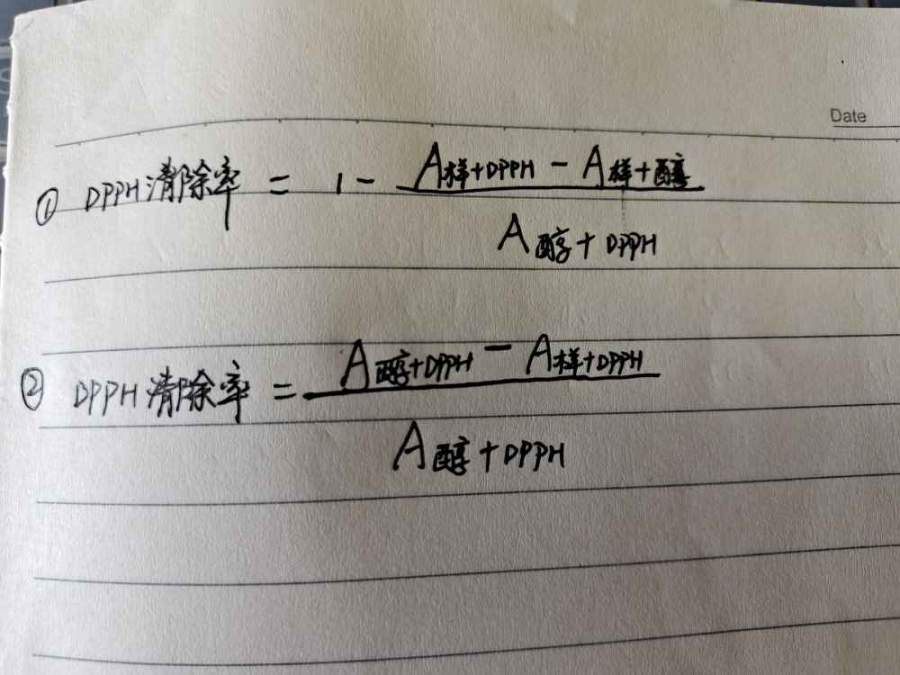 Date
① DPPH清除率 = 1 - (A样+DPPH - A样+醇) / A醇+DPPH
② DPPH清除率 = (A醇+DPPH - A样+DPPH) / A醇+DPPH